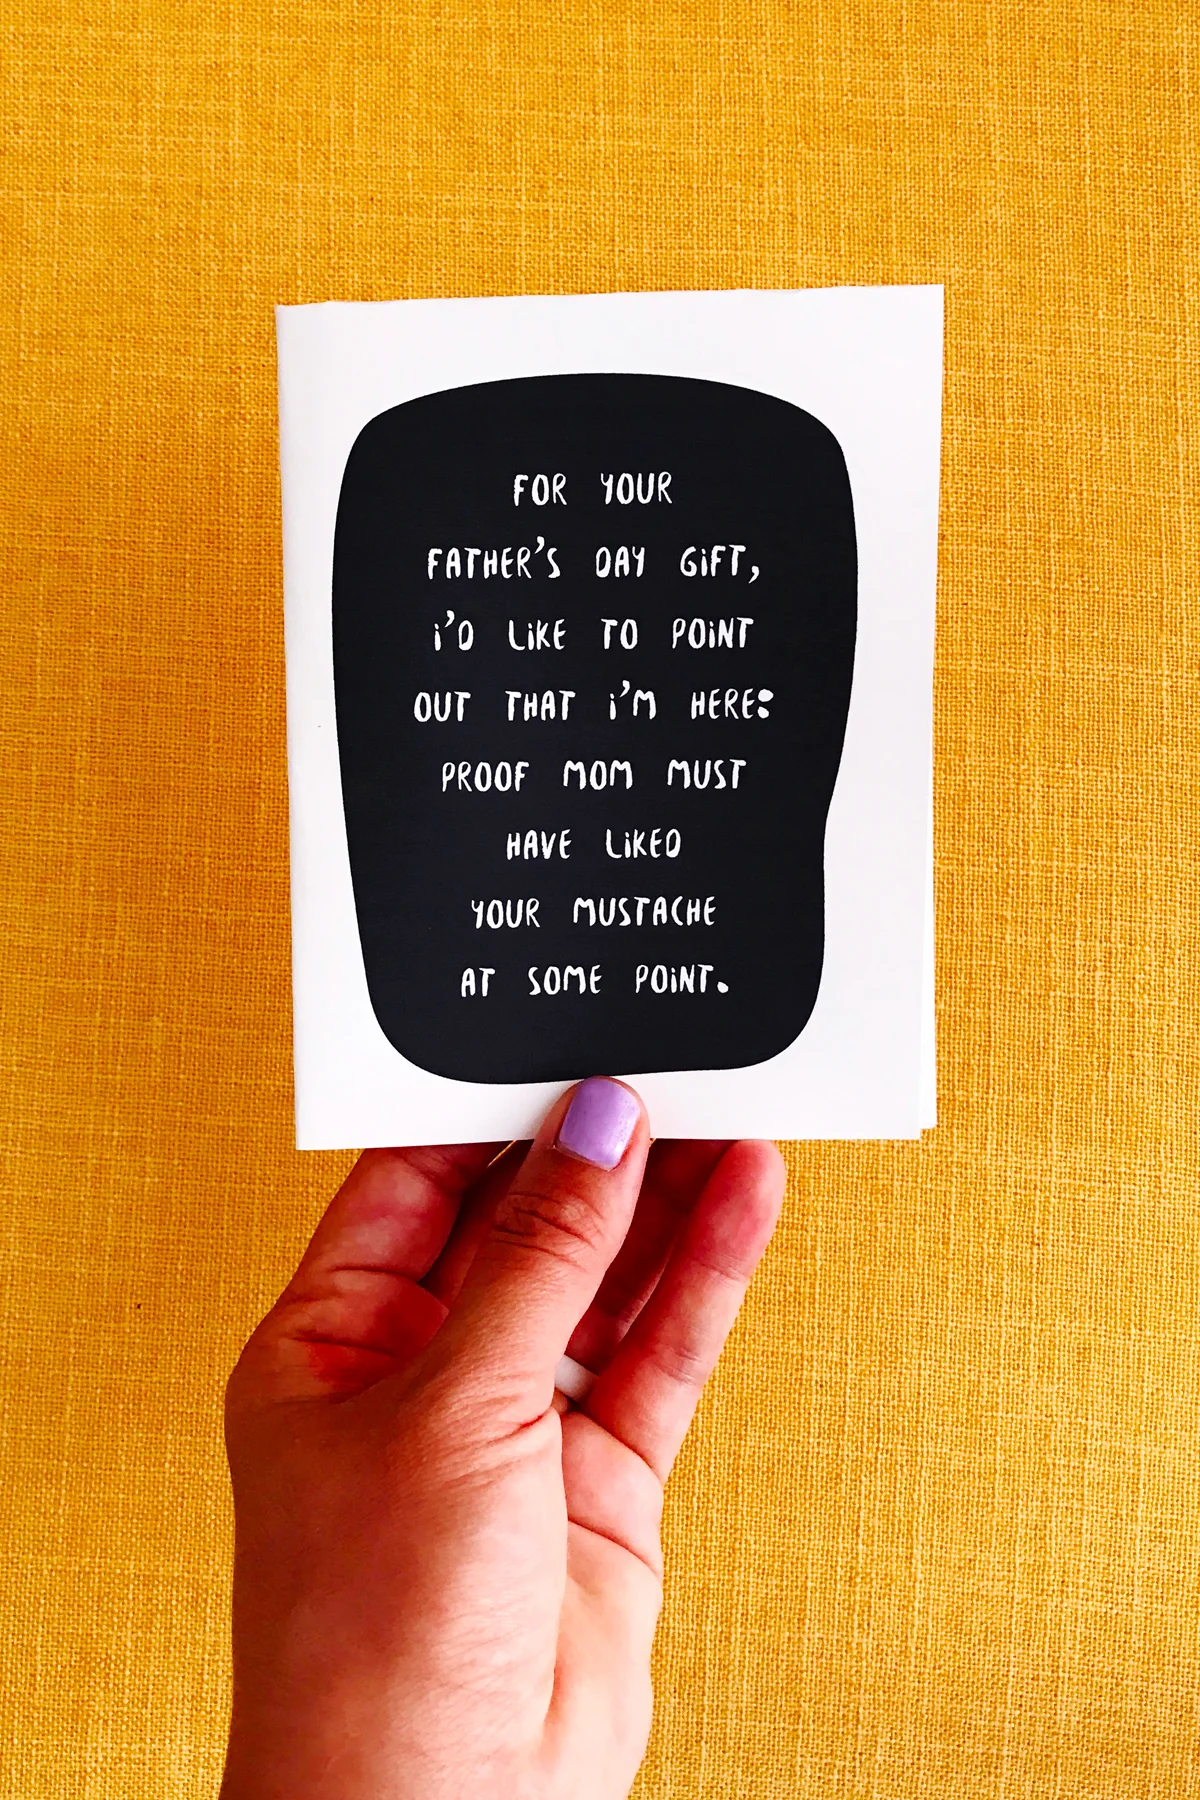 FOR YOUR
FATHER'S DAY GiFT,
i'D LiKE TO POiNT
OUT THAT i'M HERE:
PROOF MOM MUST
HAVE LiKED
YOUR MUSTACHE
AT SOME POiNT.